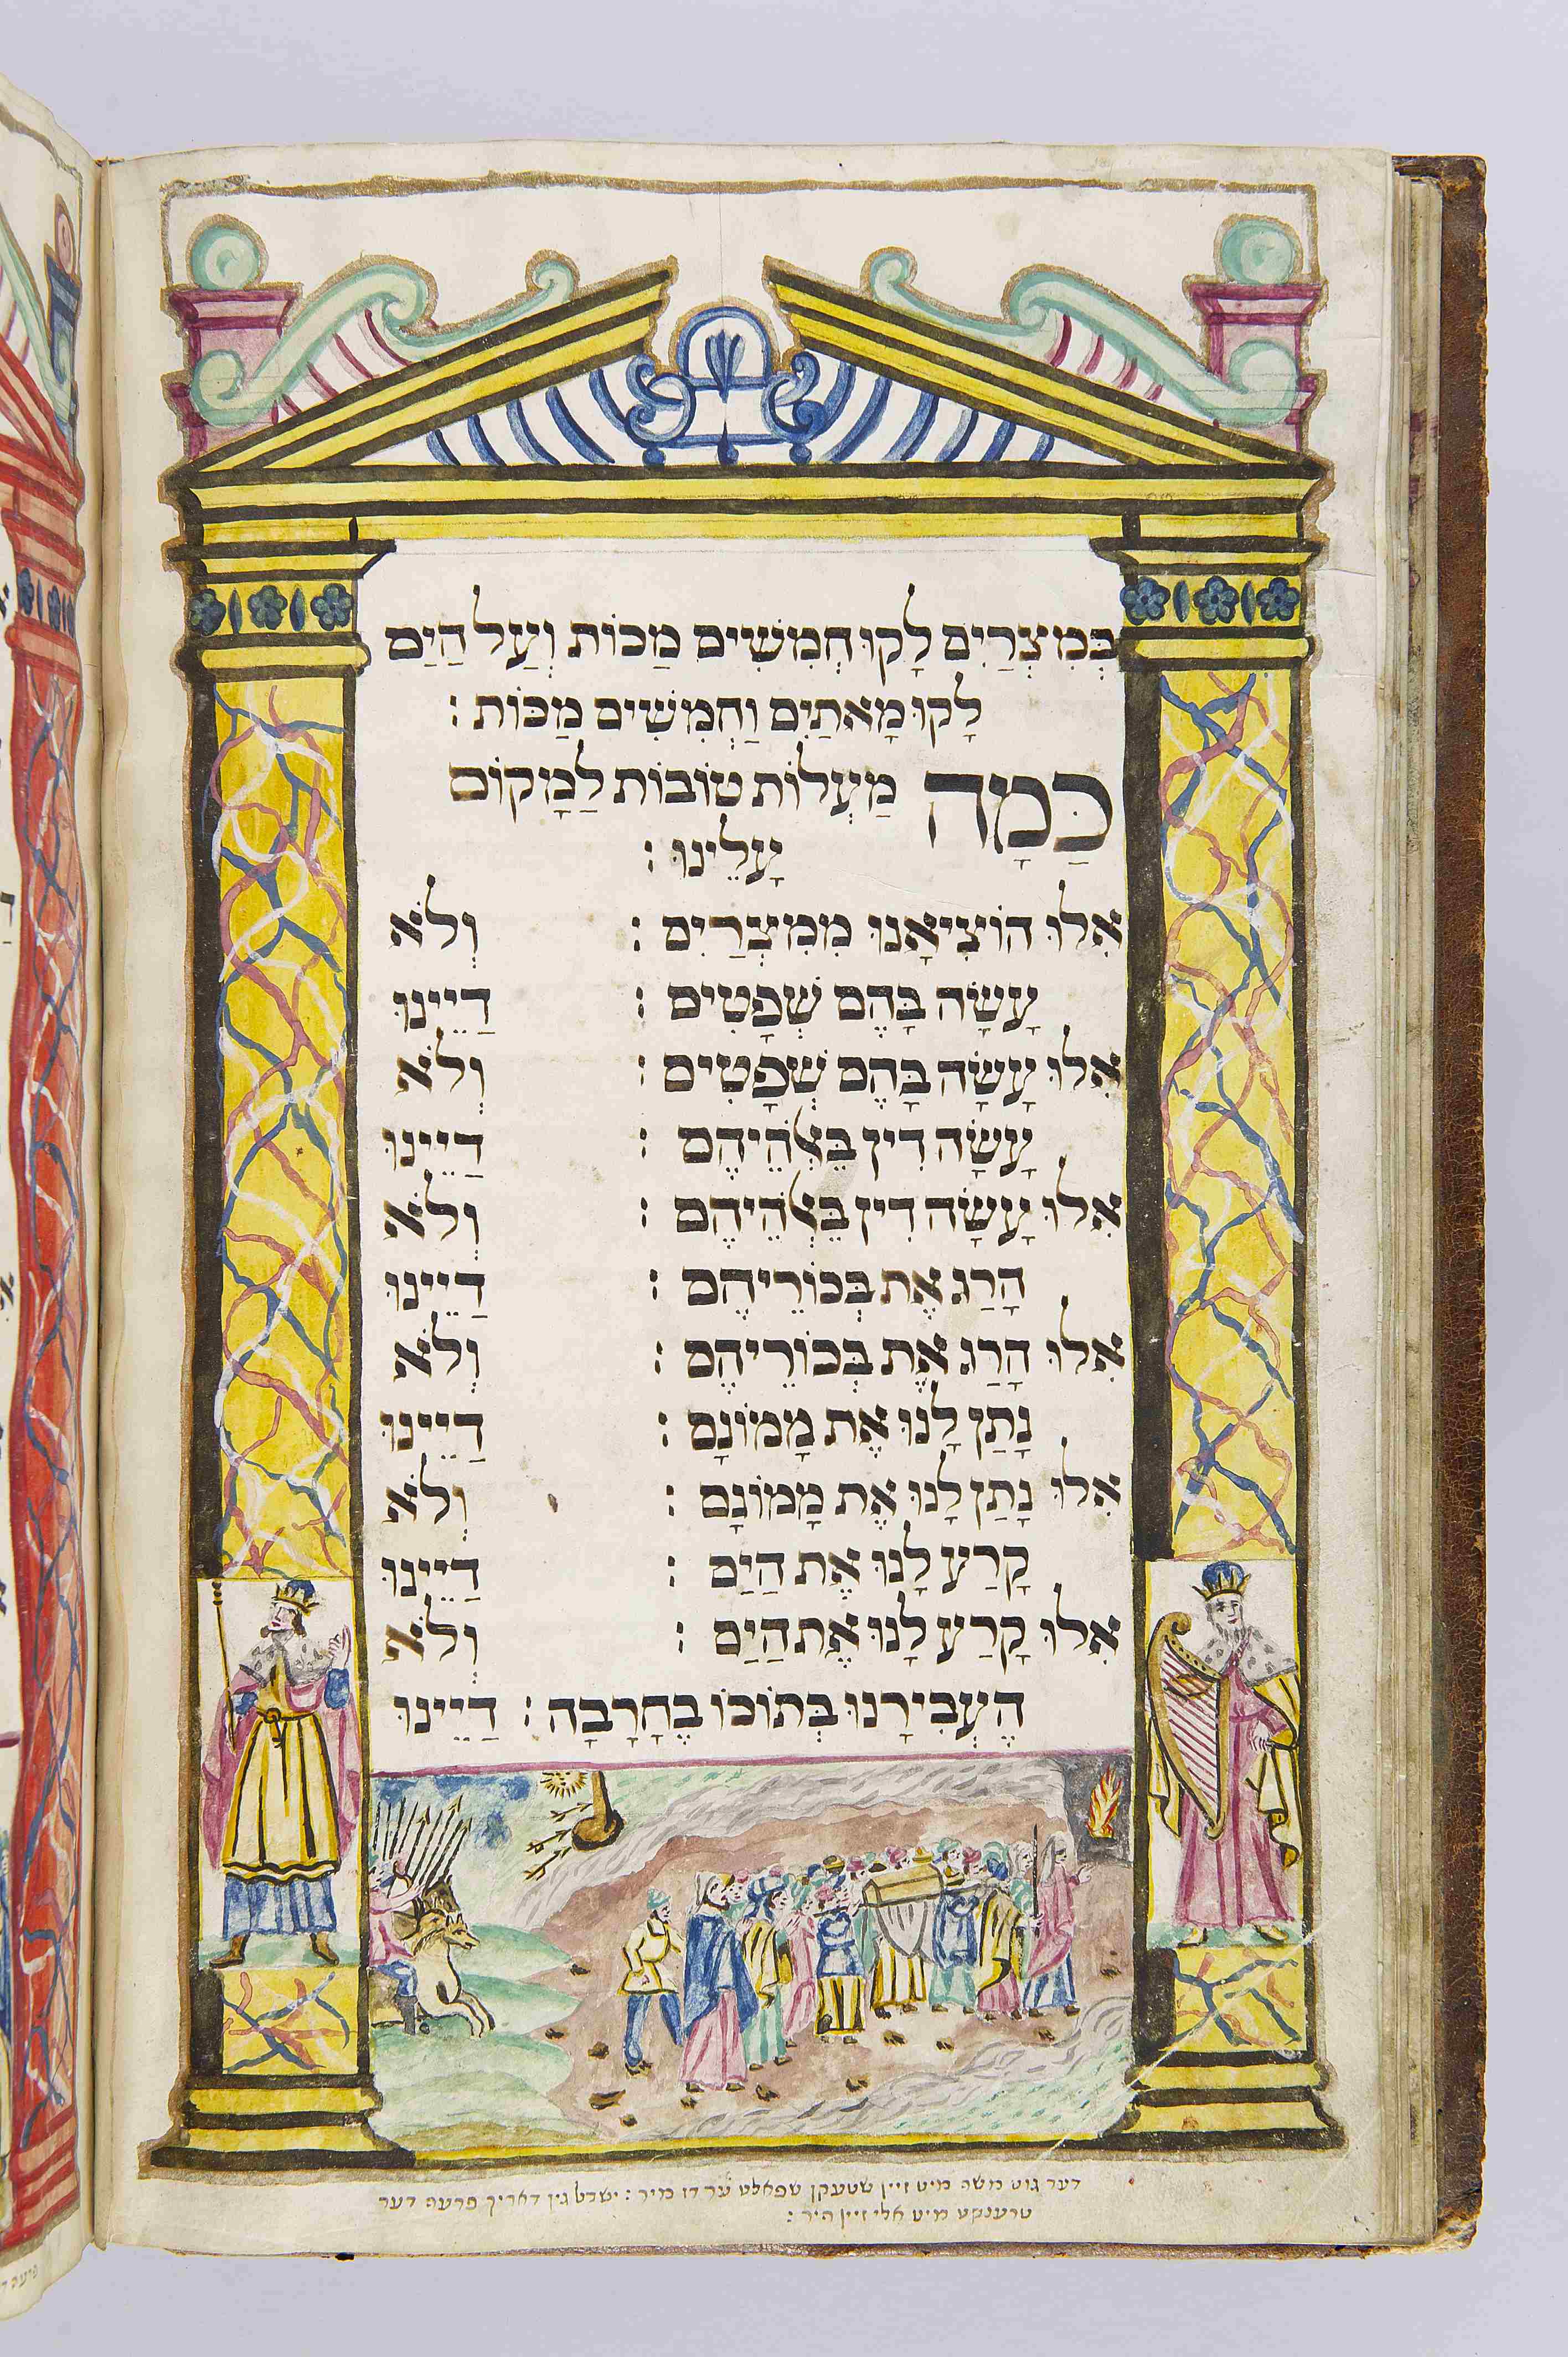 בְּמִצְרַיִם לָקוּ חֲמִשִּׁים מַכּוֹת וְעַל הַיַּם
לָקוּ מָאתַיִם וַחֲמִשִּׁים מַכּוֹת :
כַּמָּה מַעֲלוֹת טוֹבוֹת לַמָּקוֹם
עָלֵינוּ :
אִלוּ הוֹצִיאָנוּ מִמִצְרַיִם : וְלֹא
עָשָׂה בָּהֶם שְׁפָטִים : דַיֵינוּ
אִלוּ עָשָׂה בָּהֶם שְׁפָטִים : וְלֹא
עָשָׂה דִין בֵּאלֹהֵיהֶם : דַיֵינוּ
אִלוּ עָשָׂה דִין בֵּאלֹהֵיהֶם : וְלֹא
הָרַג אֶת בְּכוֹרֵיהֶם : דַיֵינוּ
אִלוּ הָרַג אֶת בְּכוֹרֵיהֶם : וְלֹא
נָתַן לָנוּ אֶת מָמוֹנָם : דַיֵינוּ
אִלוּ נָתַן לָנוּ אֶת מָמוֹנָם : וְלֹא
קָרַע לָנוּ אֶת הַיַם : דַיֵינוּ
אִלוּ קָרַע לָנוּ אֶת הַיַם : וְלֹא
הֶעֱבִירָנוּ בְּתוֹכוֹ בֶחָרָבָה : דַיֵינוּ
דער גוט משה מיט זיין שטעקן שפאלט ער דז מיר : ישראל גין דאריך פרעה דער
טרענקט מיט אלי זיין היר :